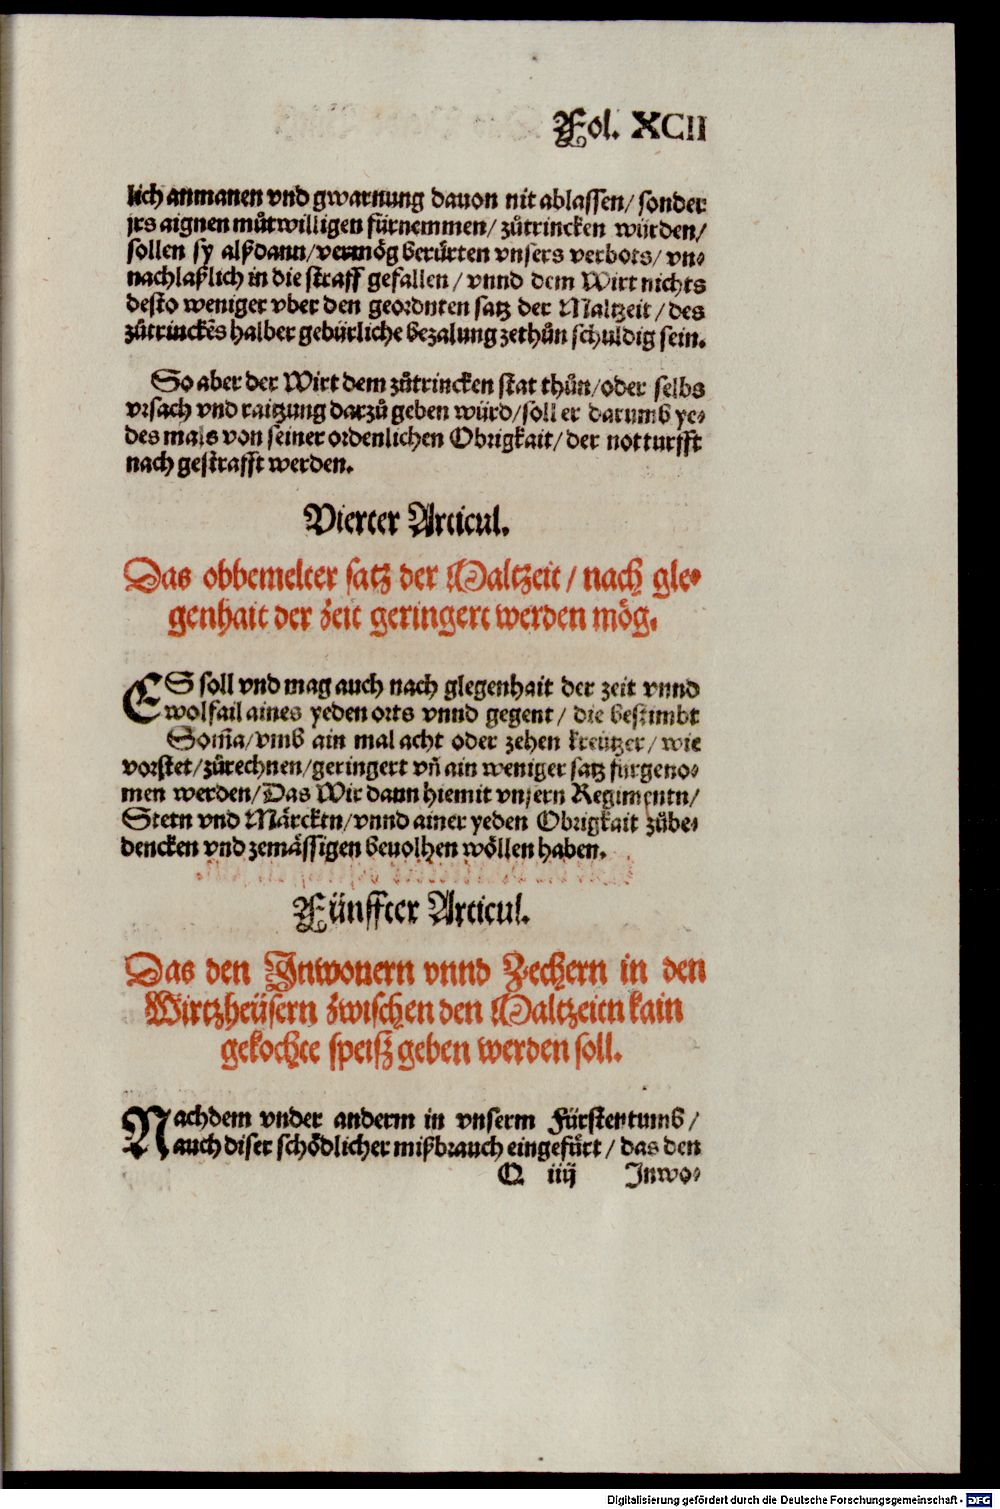 Fol. XCII
lich anmanen vnd gwarnung dauon nit ablassen/ sonder
jrs aignen můtwilligen fürnemmen/ zůtrincken würden/
sollen sy alßdann/ vermög berürten vnsers verbots/ vn-
nachlaßlich in die straff gefallen/ vnnd dem Wirt nichts
desto weniger vber den geordnten satz der Maltzeit/ des
zůtrinckẽs halber gebürliche bezalung zethůn schuldig sein.
So aber der Wirt dem zůtrincken stat thůn/ oder selbs
vrsach vnd raitzung darzů geben würd/ soll er darumb ye-
des mals von seiner ordenlichen Obrigkait/ der notturfft
nach gestrafft werden.
Vierter Articul.
Das obbemelter satz der Maltzeit/ nach gle-
genhait der zeit geringert werden mög.
ES soll vnd mag auch nach glegenhait der zeit vnnd
wolfail aines yeden orts vnnd gegent/ die bestimbt
Som̃a/ vmb ain mal acht oder zehen kreützer/ wie
vorstet/ zůrechnen/ geringert vñ ain weniger satz fürgeno-
men werden/ Das Wir dann hiemit vnsern Regimentn/
Stetn vnd Märcktn/ vnnd ainer yeden Obrigkait zůbe-
dencken vnd zemässigen beuolhen wöllen haben.
Fünffter Articul.
Das den Inwonern vnnd Zechern in den
Wirtzheüsern zwischen den Maltzeitn kain
gekochte speiß geben werden soll.
Nachdem vnder anderm in vnserm Fürstentumb/
auch diser schödlicher mißbrauch eingefürt/ das den
Q iiij Inwo-
Digitalisierung gefördert durch die Deutsche Forschungsgemeinschaft - DFG